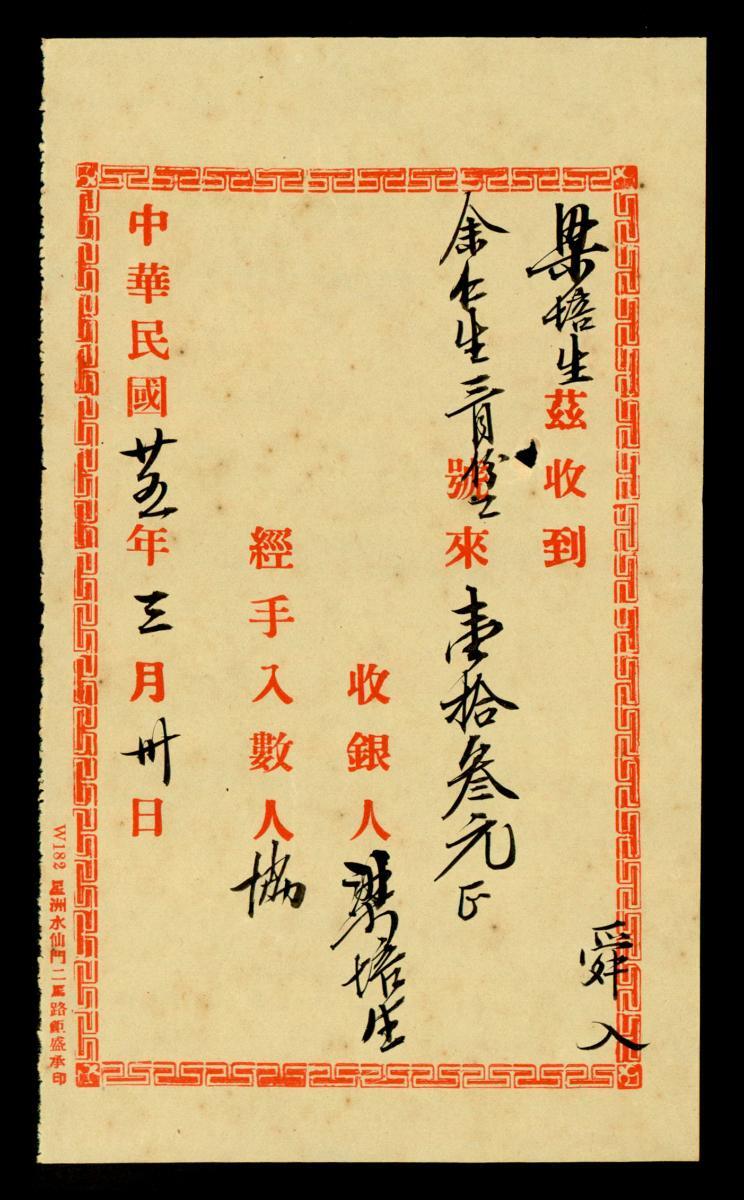 梁培生茲收到
余仁生三月份號來壹拾叁元正
收銀人梁培生
經手入數人協
中華民國廿五年三月卅日
舜入
W182 星洲水仙門二馬路鉅盛承印